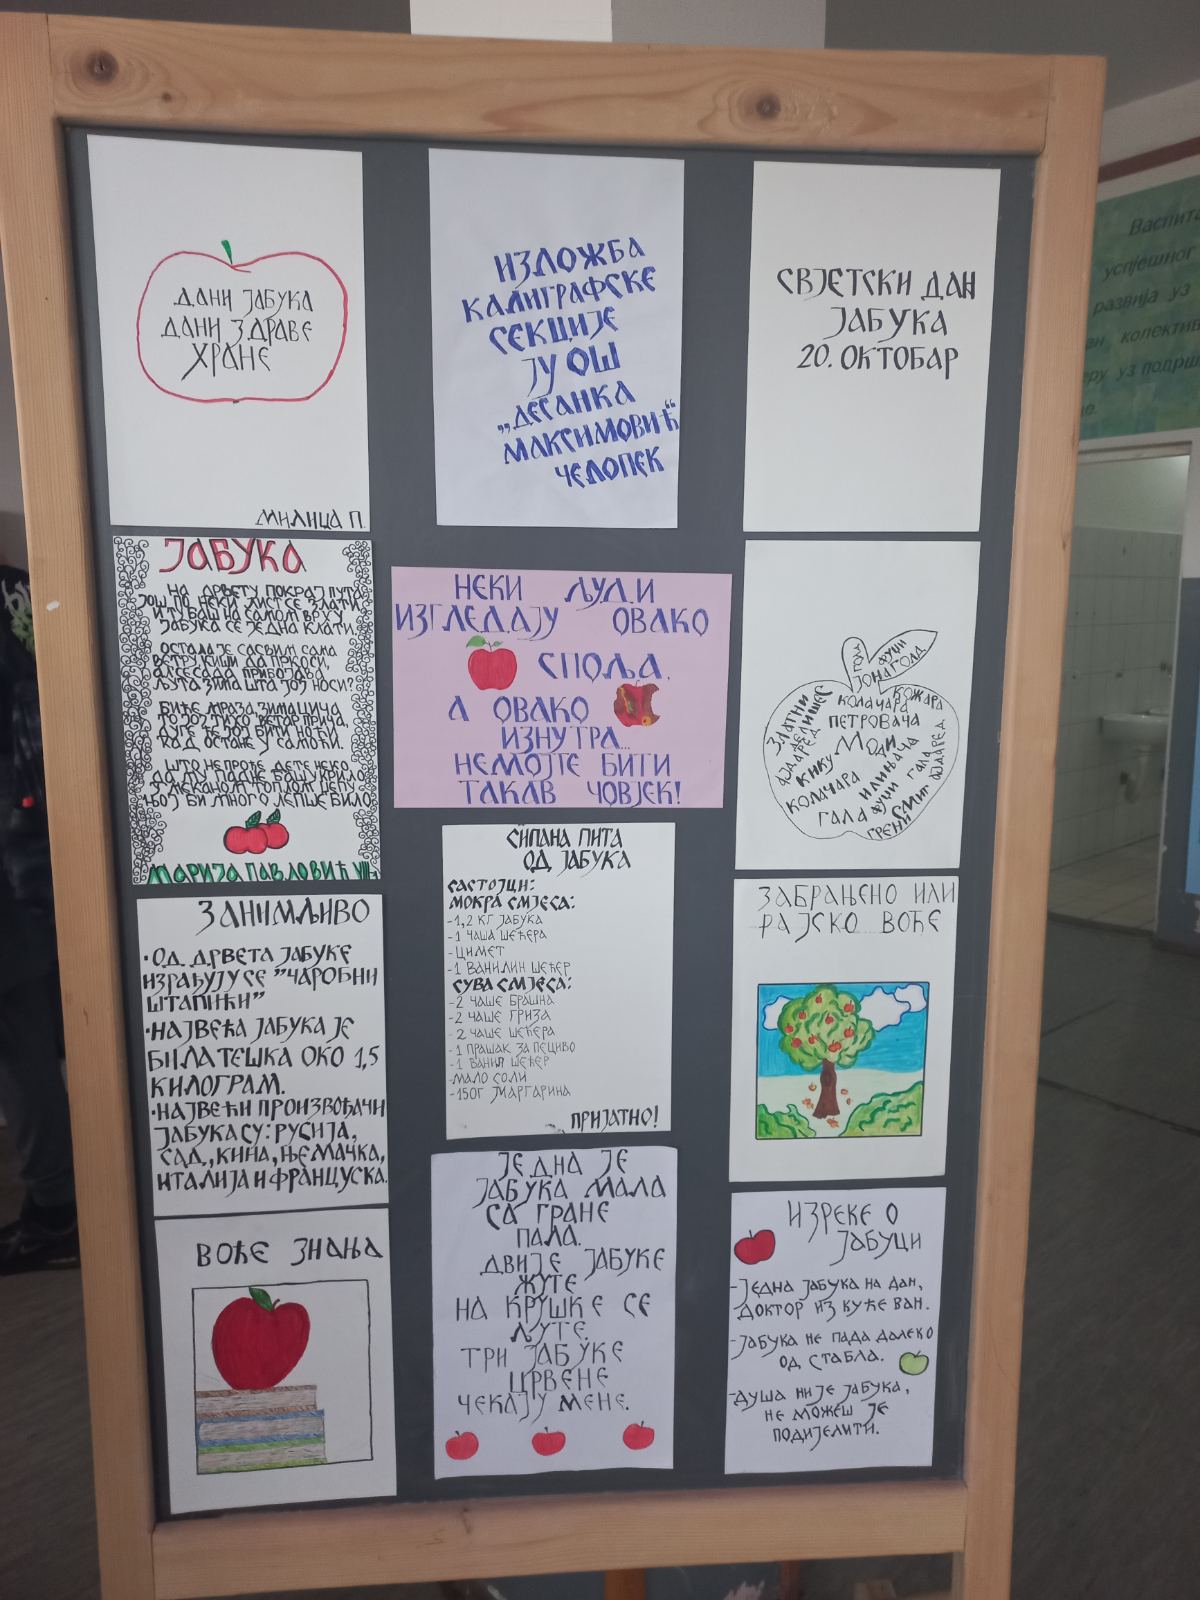 ДАНИ ЈАБУКА
ДАНИ ЗДРАВЕ
ХРАНЕ
МИЛИЦА П.
ИЗЛОЖБА
КАЛИГРАФСКЕ
СЕКЦИЈЕ
ЈУ ОШ
„ДЕСАНКА
МАКСИМОВИЋ“
ЧЕЛОПЕК
СВЈЕТСКИ ДАН
ЈАБУКА
20. ОКТОБАР
ЈАБУКА
НА ДРВЕТУ ПОКРАЈ ПУТА
ЈОШ ПО НЕКИ ЛИСТ СЕ ЗЛАТИ
И ТУ БАШ НА САМОМ ВРХУ
ЈАБУКА СЕ ЈЕДНА КЛАТИ.
ОСТАЛА ЈЕ САСВИМ САМА
ВЕТРУ, КИШИ ДА ПРКОСИ,
АЛ СЕ САДА ПРИБОЈАВА
ЉУТА ЗИМА ШТА ЈОЈ НОСИ?
БИЋЕ МРАЗА, ЗИМА ЦИЧА,
ТО ЈОЈ ТИХО ВЕТАР ПРИЧА,
ДУГЕ ЋЕ ЈОЈ БИТИ НОЋИ
КАД ОСТАНЕ У САМОЋИ.
ШТО НЕ ПРОЂЕ ДЕТЕ НЕКО
ДА МУ ПАДНЕ БАШ У КРИЛО
У МЕКАНОМ ТОПЛОМ ЏЕПУ
ЊОЈ БИ МНОГО ЛЕПШЕ БИЛО
МАРИЈА ПАВЛОВИЋ
НЕКИ ЉУДИ
ИЗГЛЕДАЈУ ОВАКО
СПОЉА,
А ОВАКО
ИЗНУТРА...
НЕМОЈТЕ БИТИ
ТАКАВ ЧОВЈЕК!
ФУЏИ
ЈОНАГОЛД
КОЖАРА
КОЛАЧАРА
ЗЛАТНИ
ДЕЛИШЕС
АЈДАРЕД
ПЕТРОВАЧА
МОДИ
КИКУ
КОЛАЧАРА
ИЛИЊАЧА
ГАЛА
АЈДАРЕД
ГАЛА
ФУЏИ
ГРЕНИ СМИТ
ЗАНИМЉИВО
•ОД ДРВЕТА ЈАБУКЕ
ИЗРАЂУЈУ СЕ "ЧАРОБНИ
ШТАПИЋИ"
•НАЈВЕЋА ЈАБУКА ЈЕ
БИЛА ТЕШКА ОКО 1,5
КИЛОГРАМ.
•НАЈВЕЋИ ПРОИЗВОЂАЧИ
ЈАБУКА СУ: РУСИЈА,
САД, КИНА, ЊЕМАЧКА,
ИТАЛИЈА И ФРАНЦУСКА.
СИПАНА ПИТА
ОД ЈАБУКА
САСТОЈЦИ:
МОКРА СМЈЕСА:
-1,2 КГ ЈАБУКА
-1 ЧАША ШЕЋЕРА
-ЦИМЕТ
-1 ВАНИЛИН ШЕЋЕР
СУВА СМЈЕСА:
-2 ЧАШЕ БРАШНА
-2 ЧАШЕ ГРИЗА
-2 ЧАШЕ ШЕЋЕРА
-1 ПРАШАК ЗА ПЕЦИВО
-1 ВАНИЛ ШЕЋЕР
-МАЛО СОЛИ
-150Г МАРГАРИНА
ПРИЈАТНО!
ЗАБРАЊЕНО ИЛИ
РАЈСКО ВОЋЕ
ВОЋЕ ЗНАЊА
ЈЕДНА ЈЕ
ЈАБУКА МАЛА
СА ГРАНЕ
ПАЛА.
ДВИЈЕ ЈАБУКЕ
ЖУТЕ
НА КРУШКЕ СЕ
ЉУТЕ.
ТРИ ЈАБУКЕ
ЦРВЕНЕ
ЧЕКАЈУ МЕНЕ.
ИЗРЕКЕ О
ЈАБУЦИ
-ЈЕДНА ЈАБУКА НА ДАН,
ДОКТОР ИЗ КУЋЕ ВАН.
-ЈАБУКА НЕ ПАДА ДАЛЕКО
ОД СТАБЛА.
-ДУША НИЈЕ ЈАБУКА,
НЕ МОЖЕШ ЈЕ
ПОДИЈЕЛИТИ.
успјешног
развија уз
колектив
уз подрш